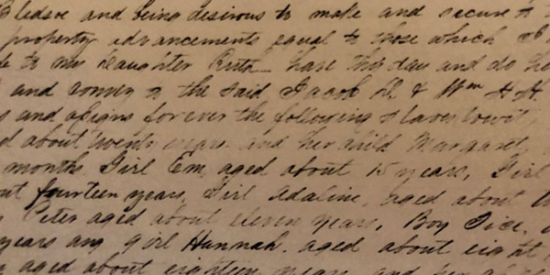 and being desirous to make and secure to
property advancements equal to those which I
to my daughter Ruth have this day and do
and convey to the said Jacob D & Wm H H
and assigns forever the following slaves towit
about twenty years and her child Margaret
months, Girl Em, aged about 15 years, Girl
fourteen years, Girl Adaline, aged about
Peter aged about eleven years, Boy Dice,
years and girl Hannah, aged about eight
aged about eighteen years and